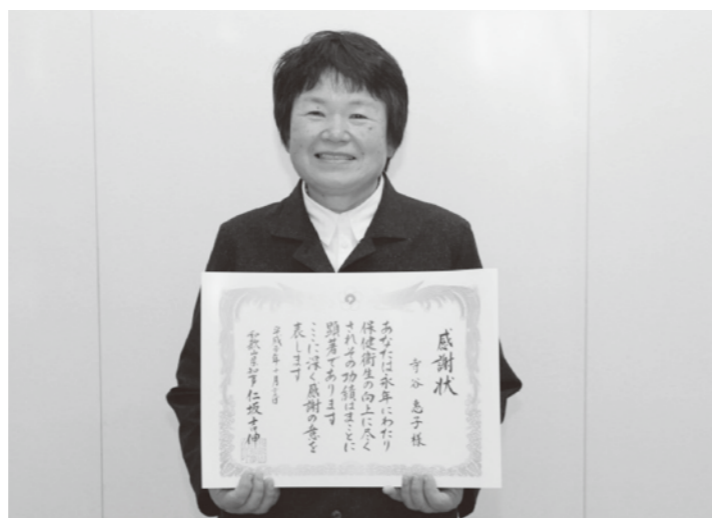 感謝状
寺谷 惠子 様
あなたは永年にわたり
保健衛生の向上に尽く
されその功績はまことに
顕著であります
ここに深く感謝の意を
表します
和歌山県知事 仁坂吉伸